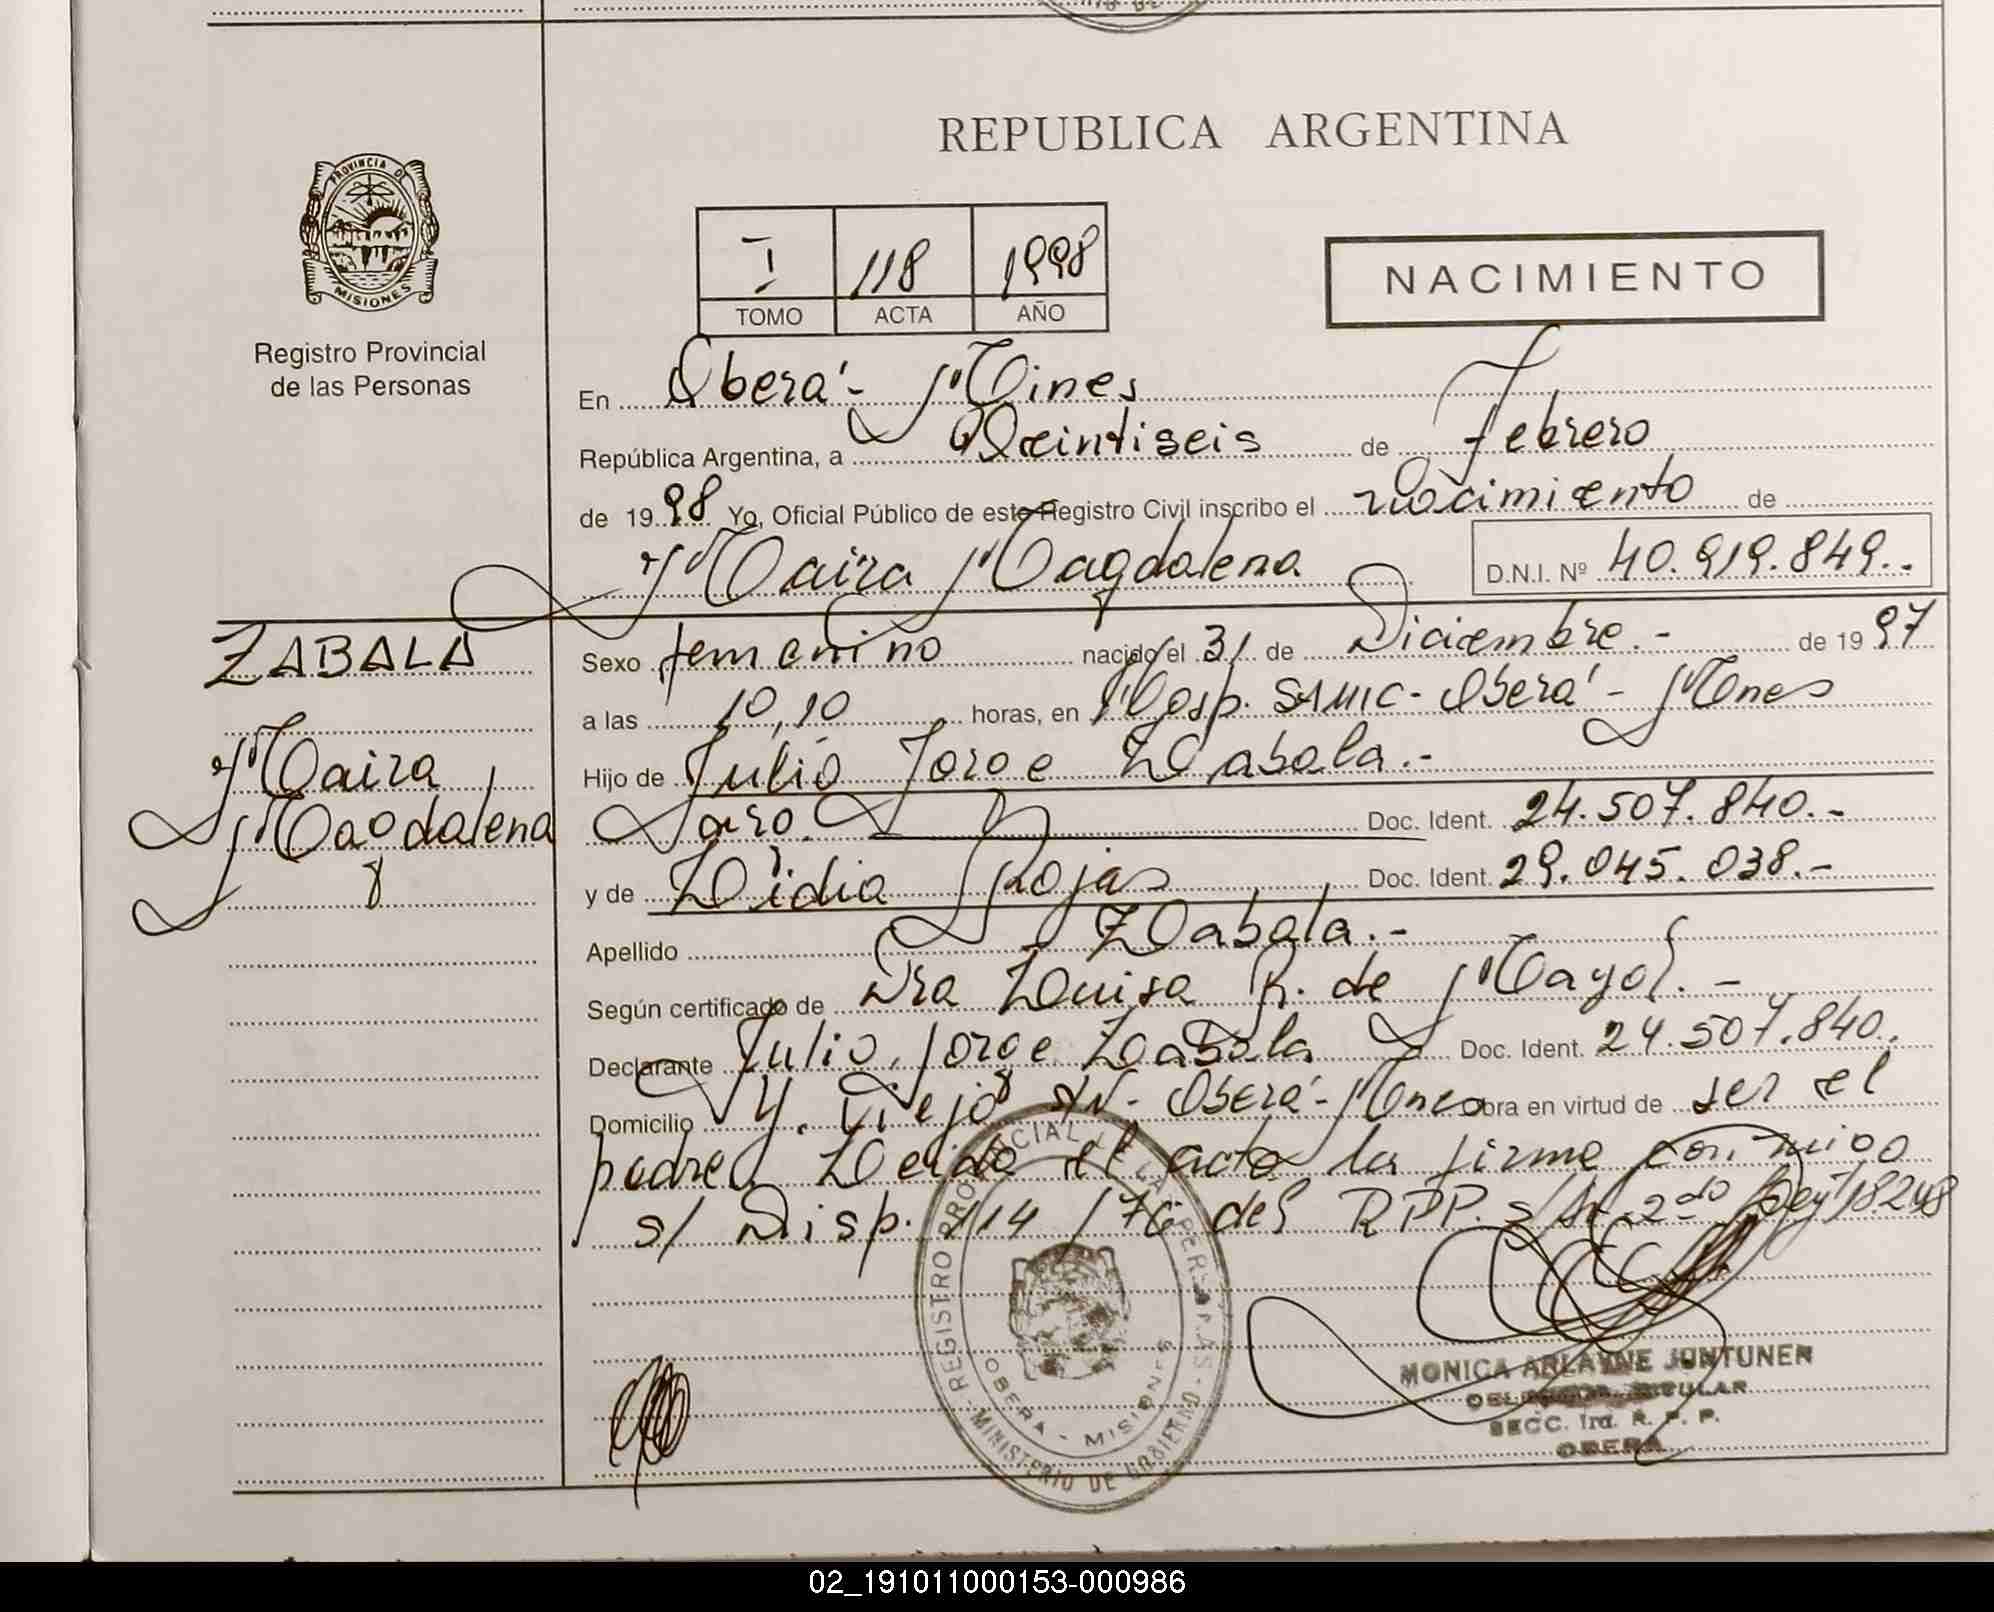 REPUBLICA ARGENTINA
PROVINCIA DE
MISIONES
Registro Provincial
de las Personas
I 118 1998
TOMO ACTA AÑO
NACIMIENTO
En Oberá - Mnes
República Argentina, a Veintiseis de Febrero
de 19 98 Yo, Oficial Público de este Registro Civil inscribo el nacimiento de
Maira Magdalena D.N.I. Nº 40.919.849..
ZABALA
Maira
Magdalena
Sexo femenino nacido el 31 de Diciembre.- de 19 97
a las 10,10 horas, en Hosp. SAMIC - Oberá - Mnes
Hijo de Julio Jorge Zabala.-
Doc. Ident. 24.507.840.-
y de Lidia Rojas Doc. Ident. 29.045.038.-
Apellido Zabala.-
Según certificado de Dra Luisa R. de Mayol.-
Declarante Julio Jorge Zabala Doc. Ident. 24.507.840.
Domicilio V. Viejo S/N - Oberá - Mnes obra en virtud de ser el
padre. Leida el acta la firma conmigo
s/ Disp. 114/76 del RPP. s/Art 2do Ley 18248
REGISTRO PROVINCIAL DE LAS PERSONAS -
MINISTERIO DE GOBIERNO -
OBERA - MISIONES
MONICA ARLAYNE JUNTUNEN
TITULAR
SECC. 1ra. R. P. P.
OBERA
02_191011000153-000986